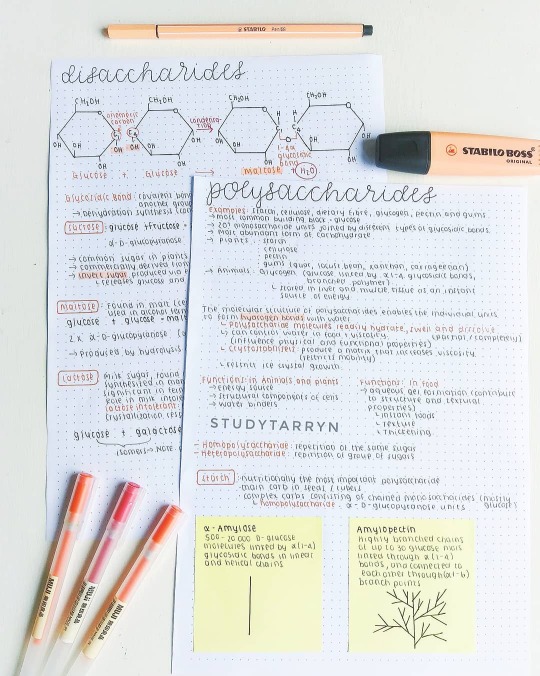 STABILO Pen 68
disaccharides
CH₂OH CH₂OH CH₂OH CH₂OH
anomeric carbon
condensation
OH OH OH OH OH OH
1-4α glycosidic bond
Glucose + Glucose → maltose + H₂O
STABILO BOSS
ORIGINAL
Glycosidic Bond: covalent bond
another group
→ dehydration synthesis (con
Sucrose: glucose + fructose =
α-D-glucopyranose
→ common sugar in plants
→ commercially derived from
→ invert sugar: produced via
releases glucose and
Maltose: Found in malt
used in alcohol
glucose + glucose = mal
2 x α-D-glucopyranose
→ produced by hydrolysis
Lactose: milk sugar, found
synthesised in mam
significant in
role in milk
lactose intolerant:
(crystallization
glucose + galactose
isomers → Note:
polysaccharides
Examples: starch, cellulose, dietary fibre, glycogen, pectin and gums
→ most common building block = glucose
→ 20+ monosaccharide units joined by different types of glycosidic bonds
→ most abundant form of carbohydrate
→ Plants: starch
cellulose
pectin
gums (guar, locust bean, xanthan, carrageenan)
→ Animals: Glycogen (glucose linked by α1-4 glycosidic bonds,
branched polymer)
↳ stored in liver and muscle tissue as an instant
source of energy
The molecular structure of polysaccharides enables the individual units
to form hydrogen bonds with water
↳ Polysaccharide molecules readily hydrate, swell and dissolve
↳ can control water in food + viscosity. (partial/completely)
(influence physical and functional properties)
↳ Cryostabilisers: produce a matrix that increases viscosity.
(restricts mobility)
↳ restrict ice crystal growth
Functions in Animals and plants
→ energy source
→ structural components of cells
→ water binders
Functions in food
→ aqueous gel formation (contribute
to structure and textural
properties)
↳ instant foods
↳ texture
↳ thickening
STUDYTARRYN
- Homopolysaccharide: repetition of the same sugar
- Heteropolysaccharide: repetition of group of sugars
Starch: nutritionally the most important polysaccharide
- main carb in seeds / tubers
- complex carbs consisting of chained monosaccharides (mostly
glucose)
↳ homopolysaccharide - α-D-glucopyranose units
α-Amylose
500-20 000 D-glucose
molecules linked by α(1-4)
glycosidic bonds in linear
and helical chains
Amylopectin
Highly branched chains
of up to 30 glucose mols
linked through α(1-4)
bonds, and connected to
each other through α(1-6)
branch points
MUJI
MUJI
MUJI